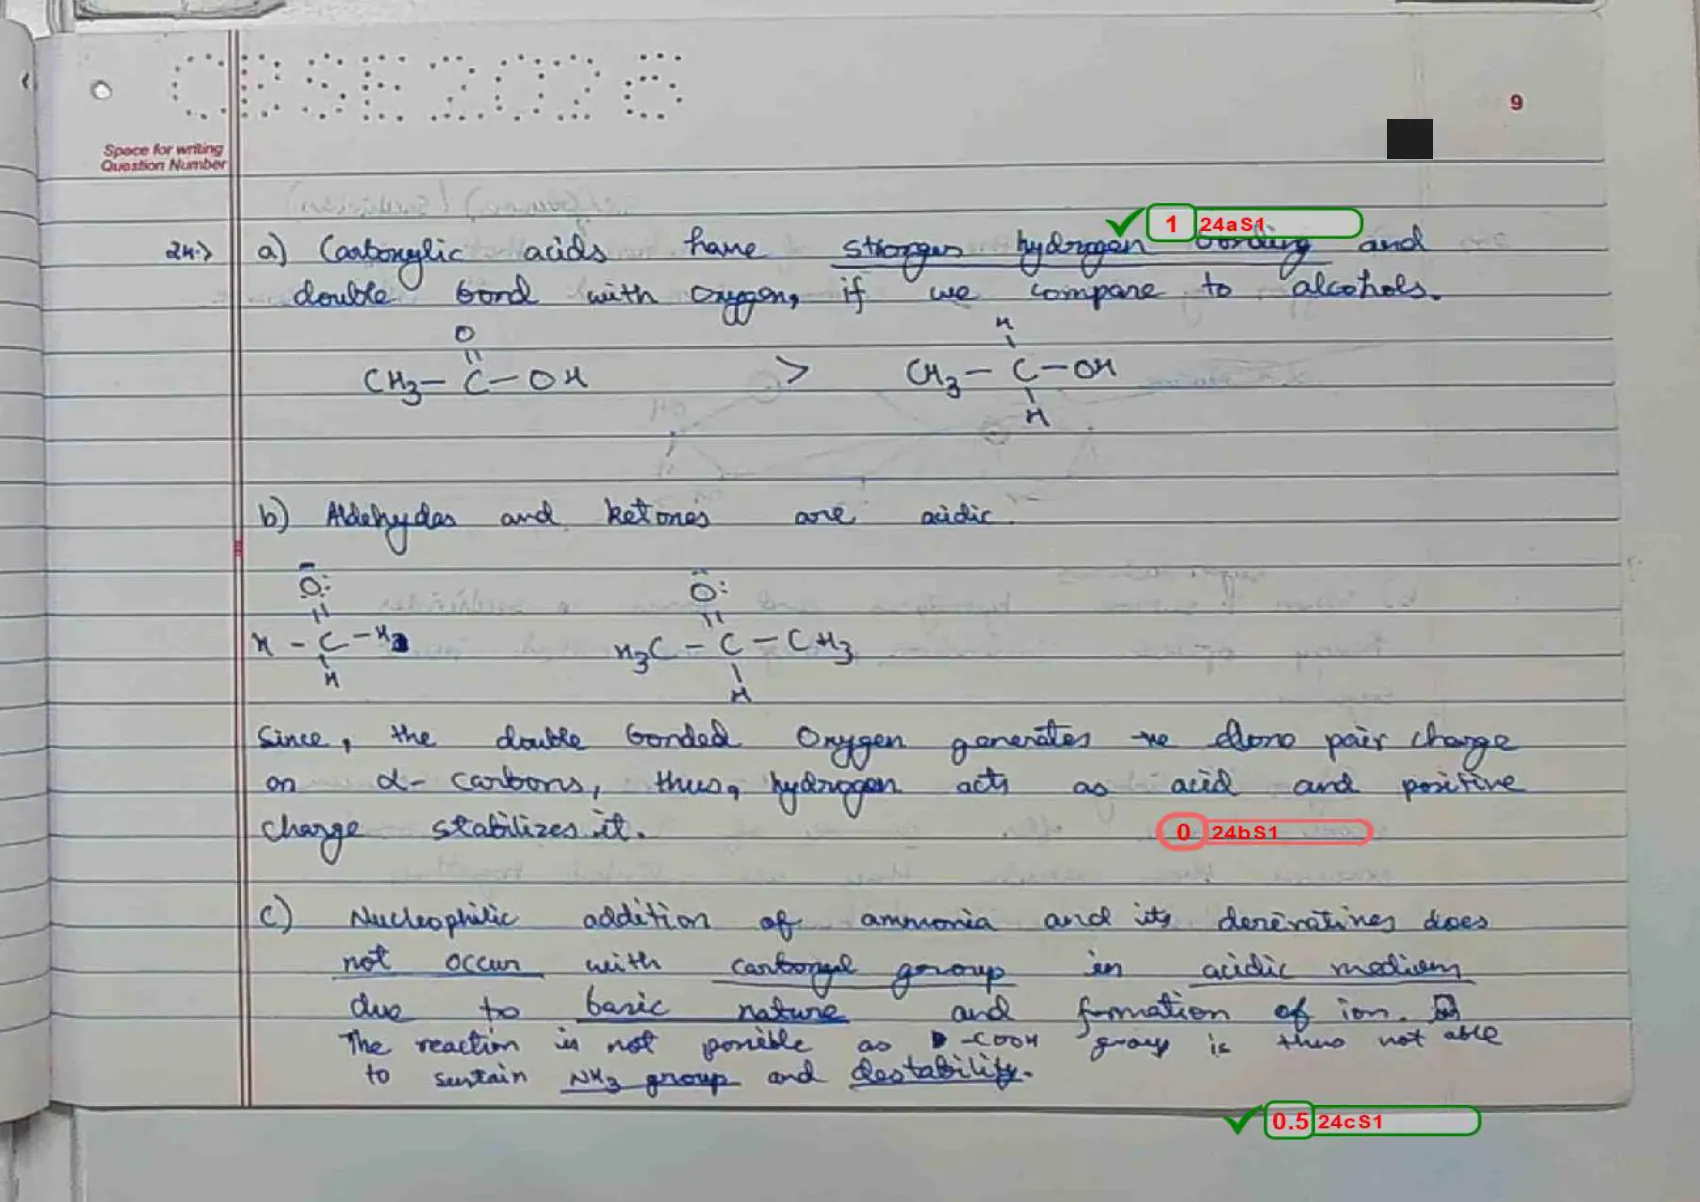 CBSE2026
9
Space for writing
Question Number
24.> a) Carboxylic acids have stronger hydrogen bonding and
1 24aS1
double bond with oxygen, if we compare to alcohols.
O
CH3 — C — OH > CH3 — C — OH
H
H
b) Aldehydes and ketones are acidic.
O: O:
H — C — H H3C — C — CH3
H H
Since, the double bonded oxygen generates -ve lone pair charge
on α- carbons, thus, hydrogen acts as acid and positive
charge stabilizes it.
0 24bS1
c) Nucleophilic addition of ammonia and its derivatines does
not occur with carbonyl group in acidic medium
due to basic nature and formation of ion.
The reaction is not possible as -COOH group is thus not able
to sustain NH3 group and destability.
0.5 24cS1